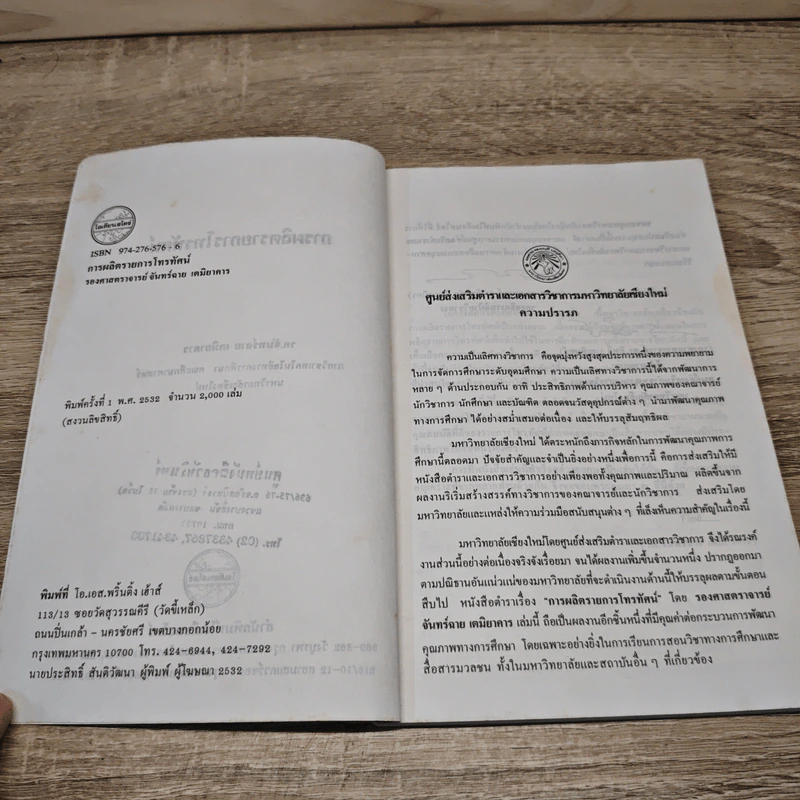 โอเดียนสโตร์
ISBN 974-276-576-6
การผลิตรายการโทรทัศน์
รองศาสตราจารย์ จันทร์ฉาย เตมิยาคาร
พิมพ์ครั้งที่ 1 พ.ศ. 2532 จำนวน 2,000 เล่ม
(สงวนลิขสิทธิ์)
พิมพ์ที่ โอ.เอส.พริ้นติ้ง เฮ้าส์
113/13 ซอยวัดสุวรรณคีรี (วัดขี้เหล็ก)
ถนนปิ่นเกล้า - นครชัยศรี เขตบางกอกน้อย
กรุงเทพมหานคร 10700 โทร. 424-6944, 424-7292
นายประสิทธิ์ สันติวัฒนา ผู้พิมพ์ ผู้โฆษณา 2532
ศูนย์ส่งเสริมตำราและเอกสารวิชาการมหาวิทยาลัยเชียงใหม่
ความปรารภ
ความเป็นเลิศทางวิชาการ คือจุดมุ่งหวังสูงสุดประการหนึ่งของความพยายาม
ในการจัดการศึกษาระดับอุดมศึกษา ความเป็นเลิศทางวิชาการนี้ได้จากพัฒนาการ
หลาย ๆ ด้านประกอบกัน อาทิ ประสิทธิภาพด้านการบริหาร คุณภาพของคณาจารย์
นักวิชาการ นักศึกษา และบัณฑิต ตลอดจนวัสดุอุปกรณ์ต่าง ๆ นำมาพัฒนาคุณภาพ
ทางการศึกษา ได้อย่างสม่ำเสมอต่อเนื่อง และให้บรรลุสัมฤทธิผล
มหาวิทยาลัยเชียงใหม่ ได้ตระหนักถึงภารกิจหลักในการพัฒนาคุณภาพการ
ศึกษานี้ตลอดมา ปัจจัยสำคัญและจำเป็นยิ่งอย่างหนึ่งเพื่อการนี้ คือการส่งเสริมให้มี
หนังสือตำราและเอกสารวิชาการอย่างเพียงพอทั้งคุณภาพและปริมาณ ผลิตขึ้นจาก
ผลงานริเริ่มสร้างสรรค์ทางวิชาการของคณาจารย์และนักวิชาการ ส่งเสริมโดย
มหาวิทยาลัยและแหล่งให้ความร่วมมือสนับสนุนต่าง ๆ ที่เล็งเห็นความสำคัญในเรื่องนี้
มหาวิทยาลัยเชียงใหม่โดยศูนย์ส่งเสริมตำราและเอกสารวิชาการ จึงได้รณรงค์
งานส่วนนี้อย่างต่อเนื่องจริงจังเรื่อยมา จนได้ผลงานเพิ่มขึ้นจำนวนหนึ่ง ปรากฏออกมา
ตามปณิธานอันแน่วแน่ของมหาวิทยาลัยที่จะดำเนินงานด้านนี้ให้บรรลุผลตามขั้นตอน
สืบไป หนังสือตำราเรื่อง "การผลิตรายการโทรทัศน์" โดย รองศาสตราจารย์
จันทร์ฉาย เตมิยาคาร เล่มนี้ ถือเป็นผลงานอีกชิ้นหนึ่งที่มีคุณค่าต่อกระบวนการพัฒนา
คุณภาพทางการศึกษา โดยเฉพาะอย่างยิ่งในการเรียนการสอนวิชาทางการศึกษาและ
สื่อสารมวลชน ทั้งในมหาวิทยาลัยและสถาบันอื่น ๆ ที่เกี่ยวข้อง